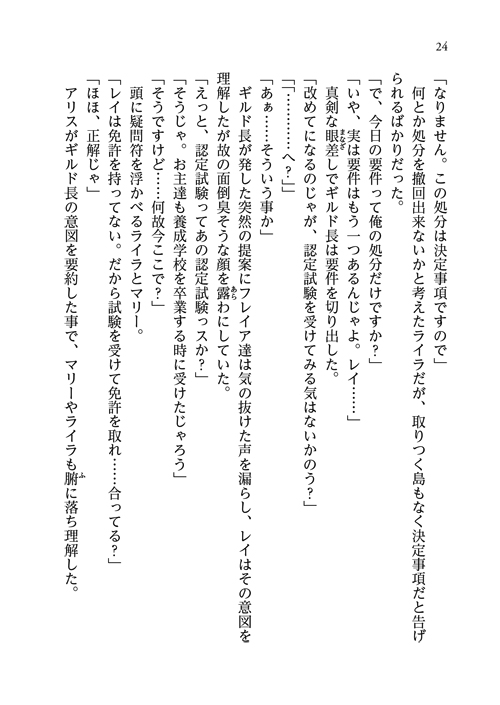 24
「なりません。この処分は決定事項ですので」
何とか処分を撤回出来ないかと考えたライラだが、取りつく島もなく決定事項だと告げ
られるばかりだった。
「で、今日の要件って俺の処分だけですか？」
「いや、実は要件はもう一つあるんじゃよ。レイ……」
真剣な眼差しでギルド長は要件を切り出した。
「改めてになるのじゃが、認定試験を受けてみる気はないかのう？」
「「…………へ？」」
「あぁ……そういう事か」
ギルド長が発した突然の提案にフレイア達は気の抜けた声を漏らし、レイはその意図を
理解したが故の面倒臭そうな顔を露わにしていた。
「えっと、認定試験ってあの認定試験っスか？」
「そうじゃ。お主達も養成学校を卒業する時に受けたじゃろう」
「そうですけど……何故今ここで？」
頭に疑問符を浮かべるライラとマリー。
「レイは免許を持ってない。だから試験を受けて免許を取れ……合ってる？」
「ほほ、正解じゃ」
アリスがギルド長の意図を要約した事で、マリーやライラも腑に落ち理解した。